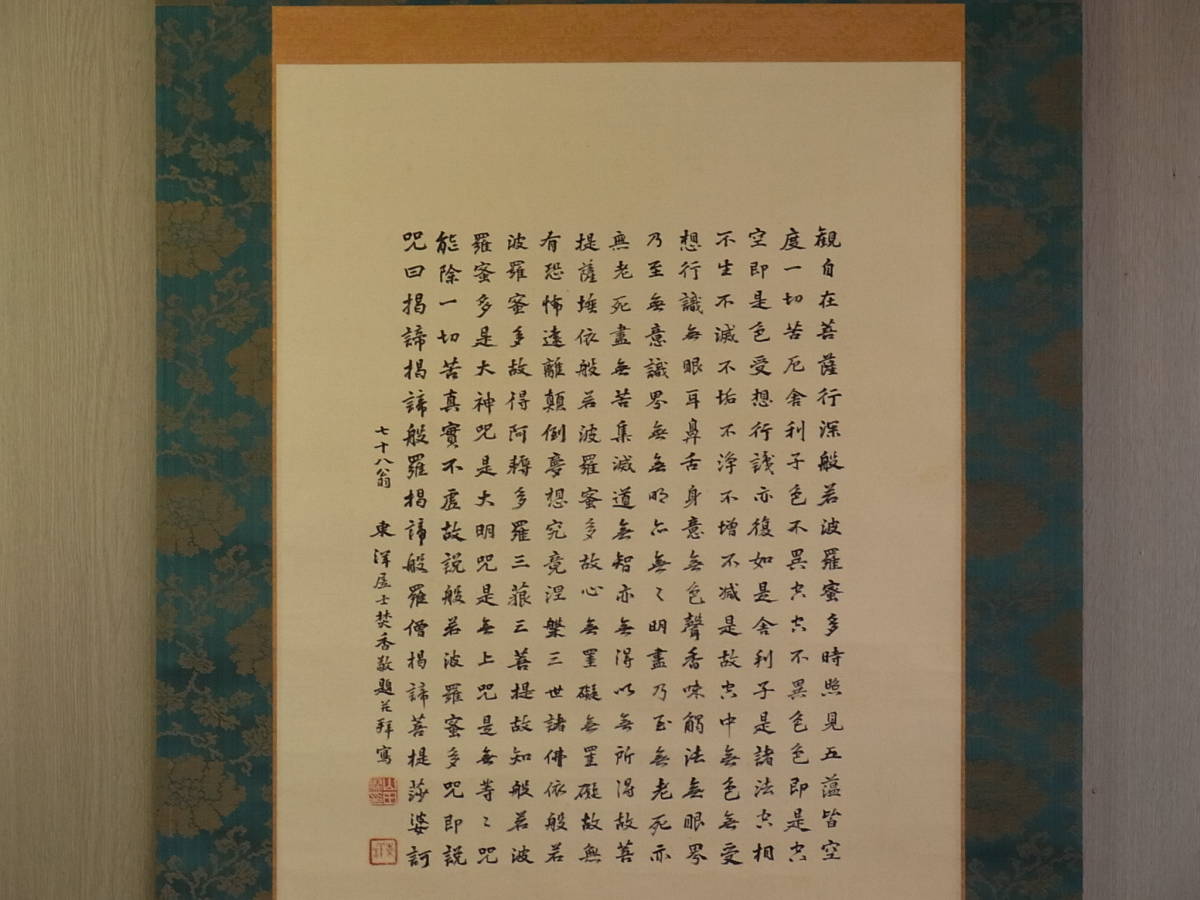 観自在菩薩行深般若波羅蜜多時照見五蘊皆空
度一切苦厄舍利子色不異空空不異色色即是空
空即是色受想行識亦復如是舍利子是諸法空相
不生不滅不垢不浄不增不減是故空中無色無受
想行識無眼耳鼻舌身意無色聲香味觸法無眼界
乃至無意識界無無明亦無〻明盡乃至無老死亦
無老死盡無苦集滅道無智亦無得以無所得故菩
提薩埵依般若波羅蜜多故心無罣礙無罣礙故無
有恐怖遠離顛倒夢想究竟涅槃三世諸佛依般若
波羅蜜多故得阿耨多羅三藐三菩提故知般若波
羅蜜多是大神咒是大明咒是無上咒是無等〻咒
能除一切苦真實不虛故説般若波羅蜜多咒即説
咒曰揭諦揭諦般羅揭諦般羅僧揭諦菩提莎婆訶
七十八翁 東洋居士焚香敬題并拜寫